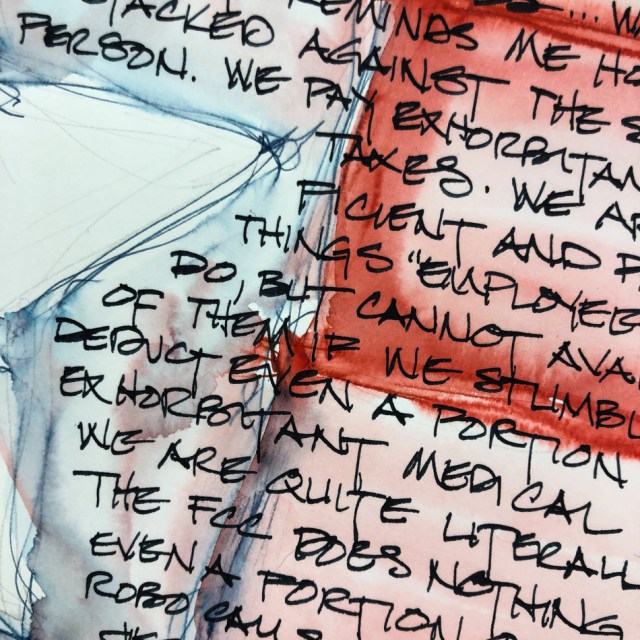 ... W
REMINDS ME HO
STACKED AGAINST THE S
PERSON. WE PAY EXHORBITAN
TAXES. WE AR
FICIENT AND P
THINGS "EMPLOYEE
DO, BUT CANNOT AVA
OF THEM IF WE STUMBL
DEDUCT EVEN A PORTION
EXHORBITANT MEDICAL
WE ARE QUITE LITERALL
THE FCC DOES NOTHING
EVEN A PORTION
ROBO CALLS
THE